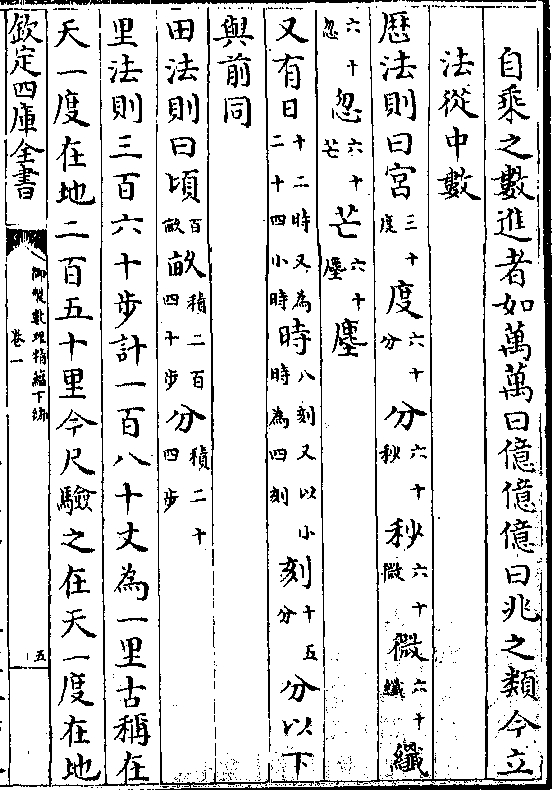 自乘之數進者如萬萬曰億億億曰兆之類今立
法從中數
歴法則曰宮三十度度六十分分六十秒秒六十微微六十纖纖
六十忽忽六十芒芒六十塵塵
又有日十二時又為二十四小時時八刻又以小時為四刻刻十五分分以下
與前同
田法則曰頃百畝畝積二百四十步分積二十四步
里法則三百六十步計一百八十丈為一里古稱在
天一度在地二百五十里今尺驗之在天一度在地
欽定四庫全書
御製數理精藴下編
卷一
五